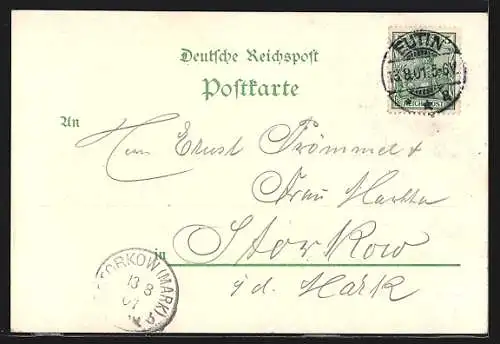 Deutsche Reichspost
Postkarte
EUTIN
13.8.01.5-6V
REICHSPOST
An
Herrn Ernst Trömmel +
Frau Martha
in Storkow
i/d. Mark
STORKOW (MARK)
13 8
01